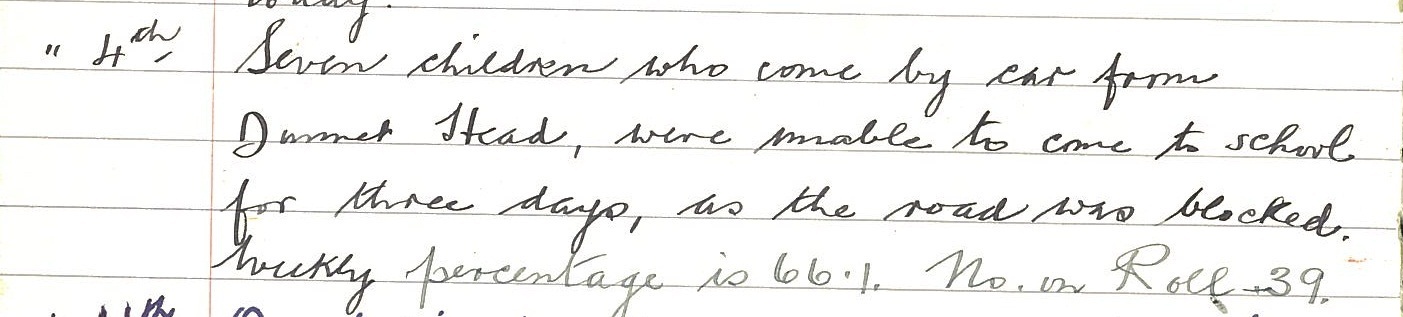 today.
" 4th Seven children who come by car from
Dunnet Head, were unable to come to school
for three days, as the road was blocked.
Weekly percentage is 66.1. No. on Roll -39.
11th